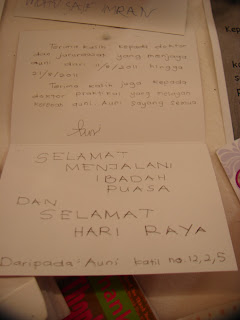 IMRAN
Terima kasih kepada doktor
dan jururawat yang menjaga
auni dari 11/8/2011 hingga
21/8/2011.
Terima kasih juga kepada
doktor praktikal yang
auni. Auni sayang semua
SELAMAT
MENJALANI
IBADAH
PUASA
DAN
SELAMAT
HARI RAYA
Daripada: Auni katil no. 12, 2, 5